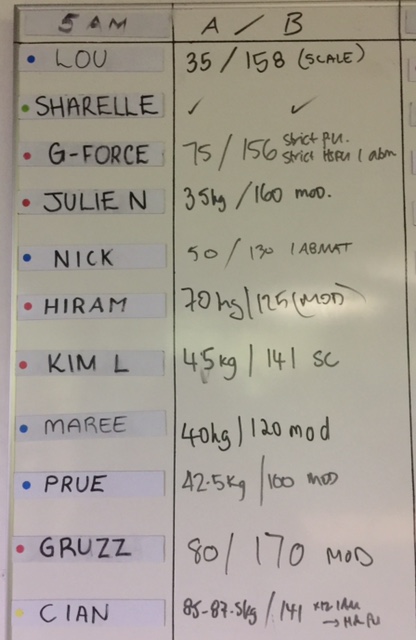 5 AM A / B
LOU 35 / 158 (SCALE)
SHARELLE ✓ ✓
G-FORCE 75 / 156 strict PU.
strict HSPU 1 abm
JULIE N 35kg / 160 MOD.
NICK 50 / 130 1 ABMAT
HIRAM 70kg / 125 (MOD)
KIM L 45kg / 141 SC
MAREE 40kg / 120 mod
PRUE 42.5kg / 100 MOD
GRUZZ 80 / 170 MOD
CIAN 85-87.5kg / 141 x12 1AM
→ HR PU